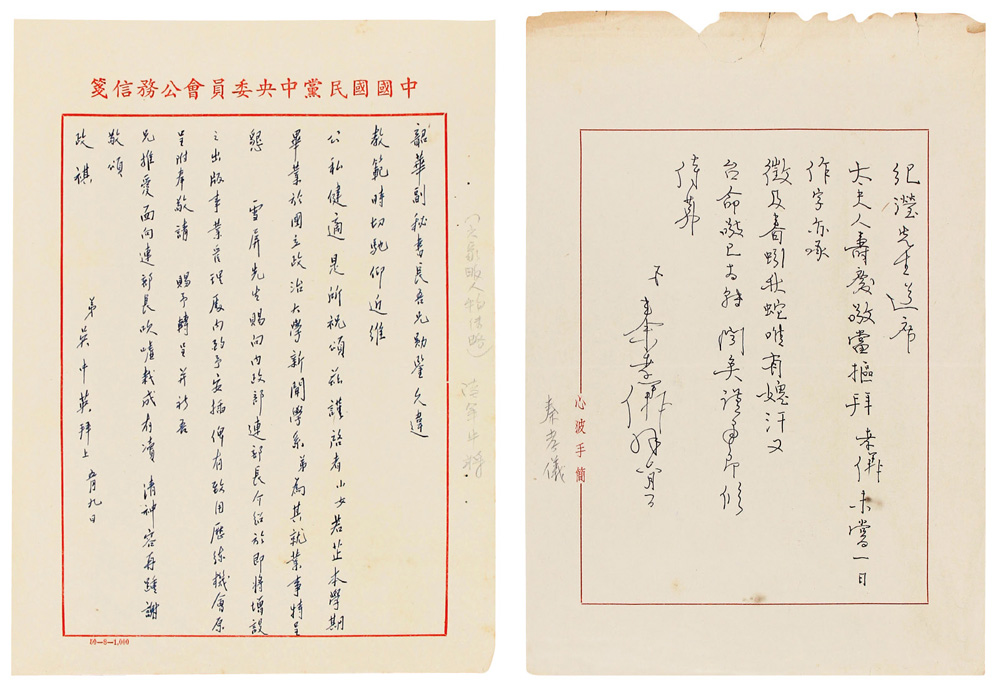 中國國民黨中央委員會公務信箋
韶華副秘書長吾兄勛鑒久違
教範時切馳仰近維
公私健適是所祝頌茲謹啓者小女若芷本學期
畢業於國立政治大學新聞學系弟為其就業事特呈
懇 雪屏先生賜向內政部連部長介紹於即將增設
之出版事業管理處內予安插俾有致用歷練機會原
呈附奉敬請 賜予轉呈并祈吾
兄推愛面向連部長吹噓栽成有瀆 清神容再踵謝
敬頌
政祺
弟吳中英拜上 九日
50—8—1,000
紀瀅先生道席
太夫人壽慶敬當摳拜 孝儀未嘗一日
作字亦承
徵及春蚓秋蛇唯有媿汗又
台命敬已
侍茀
秦孝儀
心波手簡
秦孝儀